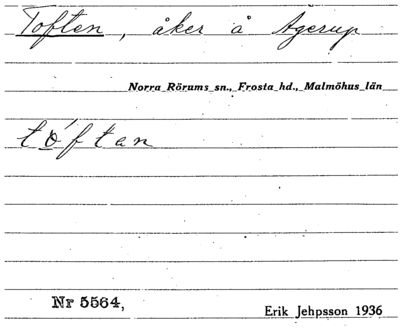 Toften, åker å Agerup
Norra Rörums sn., Frosta hd., Malmöhus län
tóftan
Nr 5564,
Erik Jehpsson 1936